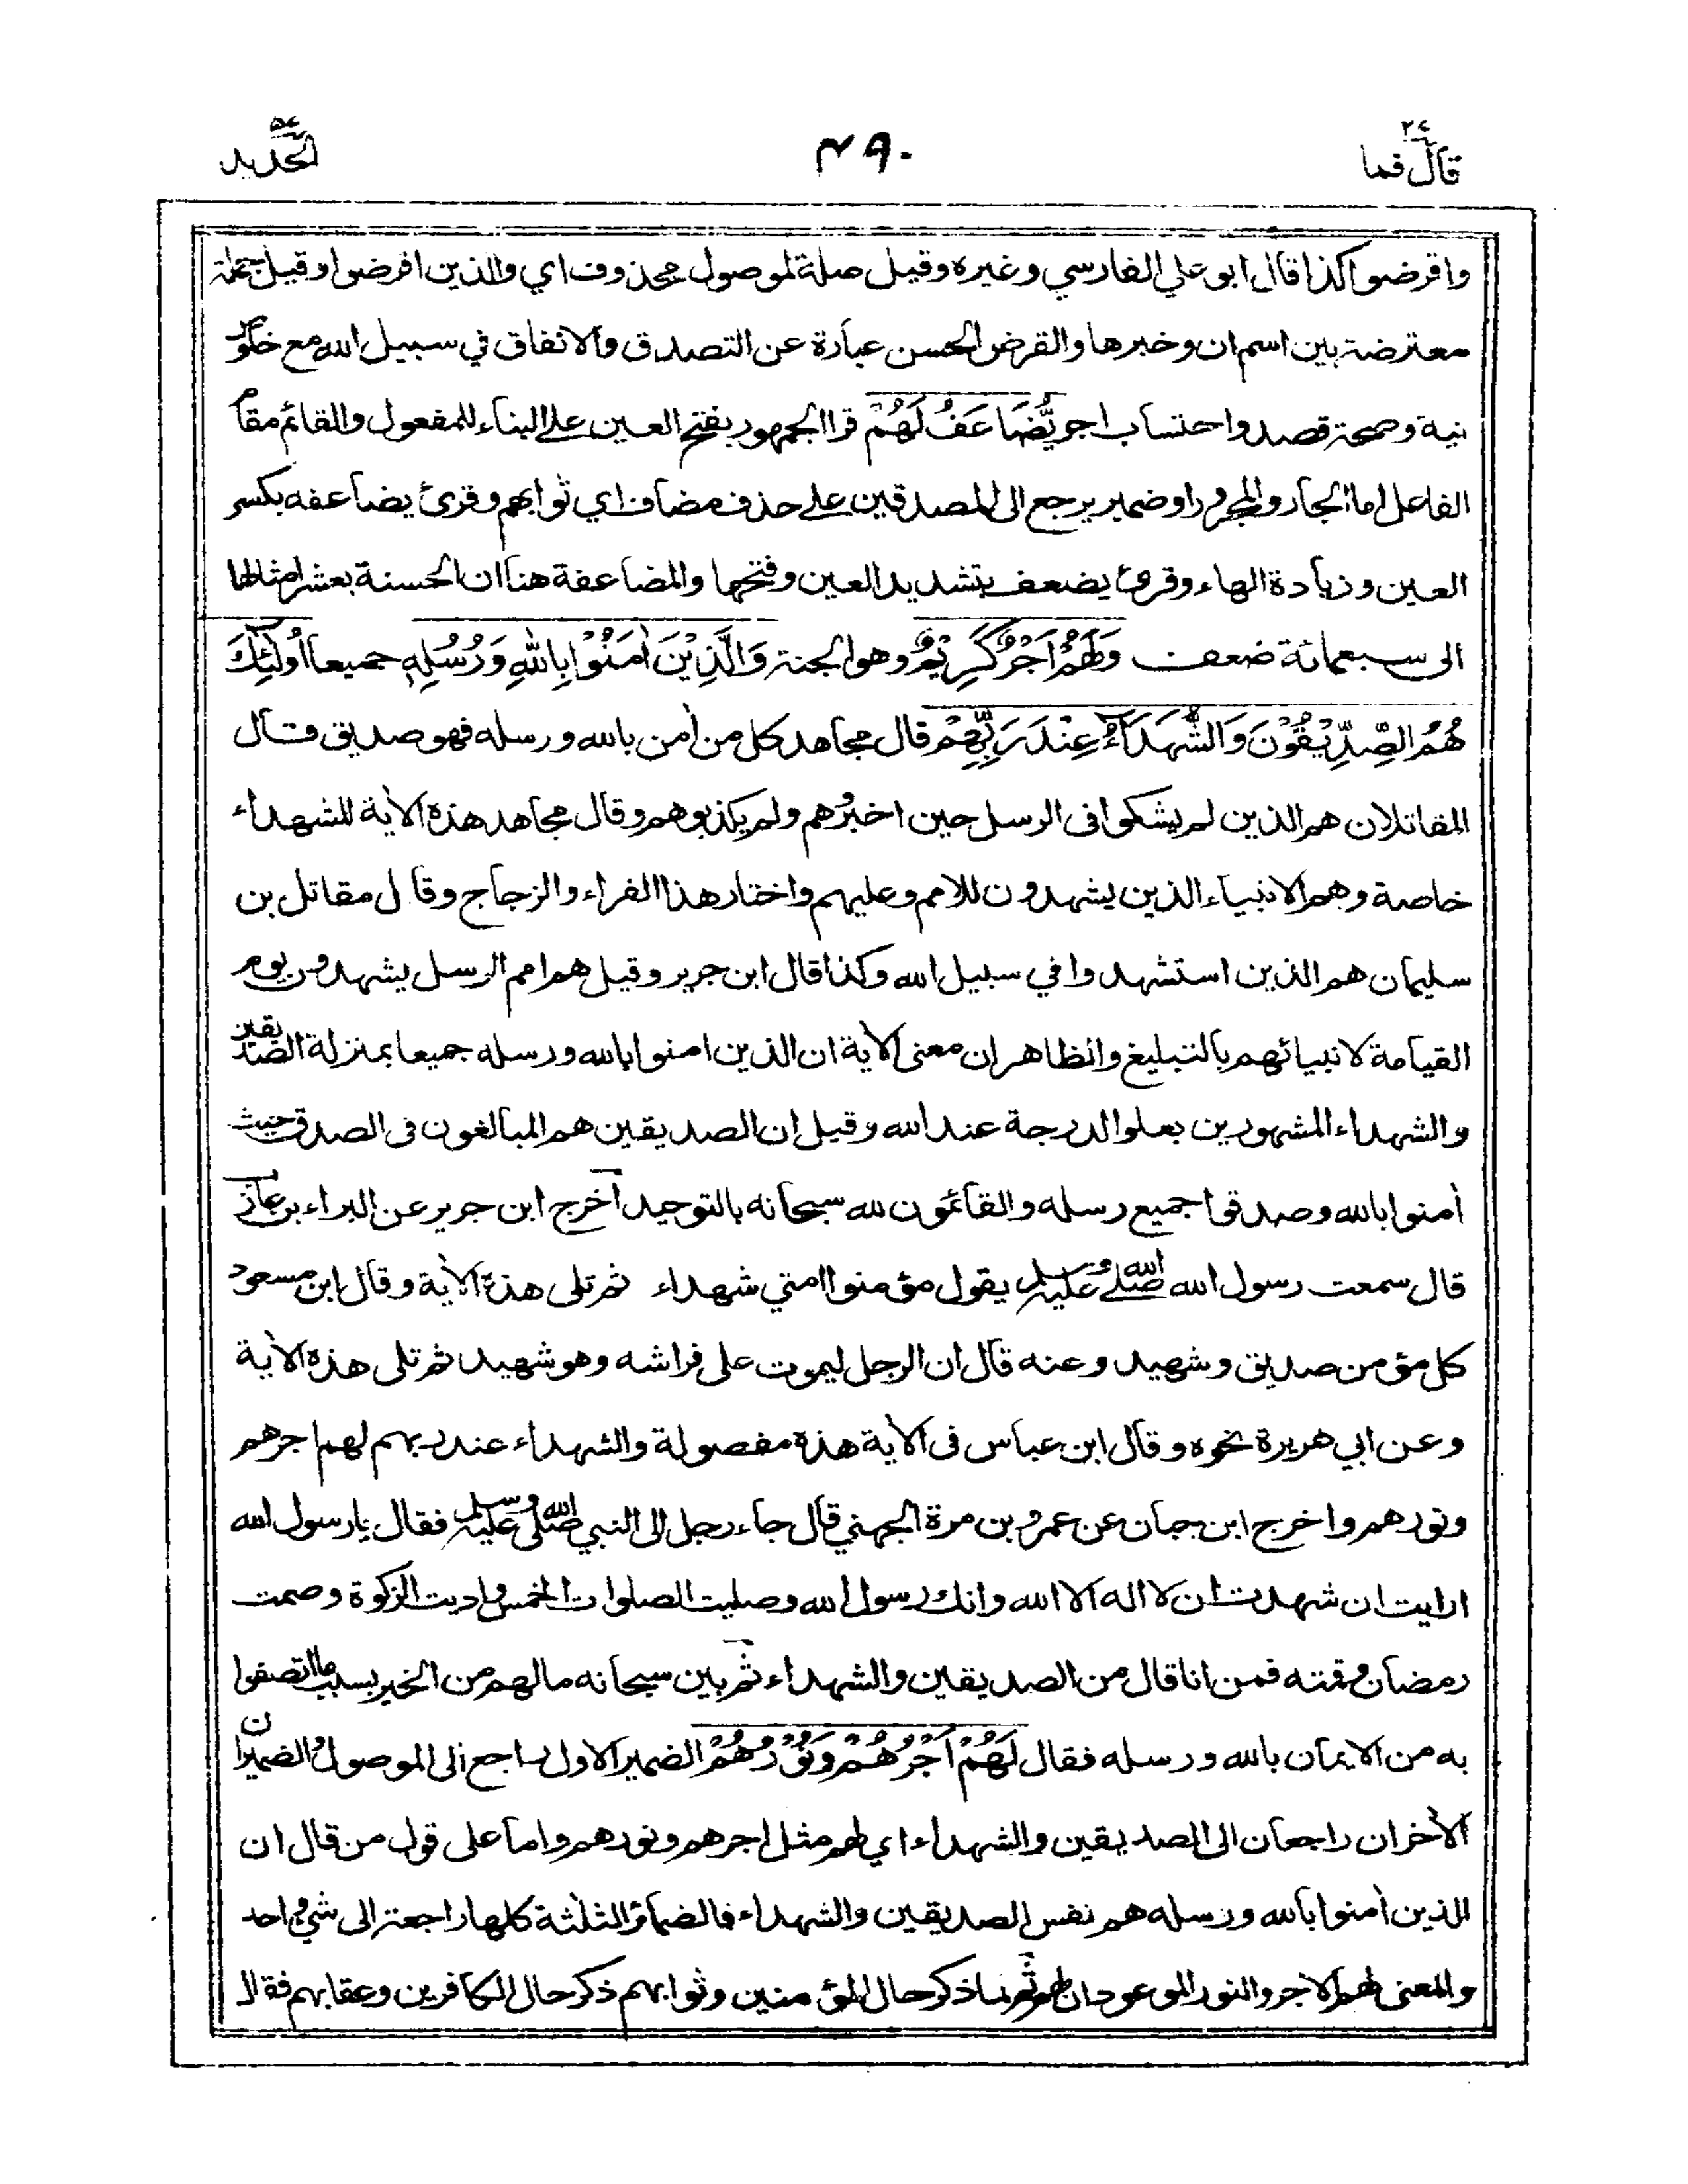 قال فما ٢٧
٤٩٠
الحديد ٥٧
واقرضوا كذا قال ابو علي الفارسي وغيره وقيل صلة لموصول محذوف اي والذين اقرضوا وقيل جملة
معترضة بين اسم ان وخبرها والقرض الحسن عبارة عن التصدق والانفاق في سبيل الله مع خلوص
نية وصحة قصد واحتساب اجر يُّضَاعَفُ لَهُمْ قرأ الجمهور بفتح العين على البناء للمفعول والقائم مقام
الفاعل اما الجار والمجرور او ضمير يرجع الى المصدقين على حذف مضاف اي ثوابهم وقرئ يضاعفه بكسر
العين وزيادة الهاء وقرئ يضعف بتشديد العين وفتحها والمضاعفة هنا ان الحسنة بعشر امثالها
الى سبعمائة ضعف وَلَهُمْ اَجْرٌ كَرِيْمٌ وهو الجنة وَالَّذِيْنَ اٰمَنُوْا بِاللّٰهِ وَرُسُلِهٖ جميعا اُولٰٓئِكَ
هُمُ الصِّدِّيْقُوْنَ وَالشُّهَدَآءُ عِنْدَ رَبِّهِمْ قال مجاهد كل من اٰمن بالله ورسله فهو صديق قال
المقاتلان هم الذين لم يشكوا فى الرسل حين اخبروهم ولم يكذبوهم وقال مجاهد هذه الاٰية للشهداء
خاصة وهم الانبياء الذين يشهدون للامم وعليهم واختار هذا الفراء والزجاج وقال مقاتل بن
سليمان هم الذين استشهدوا في سبيل الله وكذا قال ابن جرير وقيل هم امم الرسل يشهدون يوم
القيامة لانبيائهم بالتبليغ والظاهر ان معنى الاٰية ان الذين امنوا بالله ورسله جميعا بمنزلة الصديقين
والشهداء المشهورين بعلو الدرجة عند الله وقيل ان الصديقين هم المبالغون فى الصدق حيث
اٰمنوا بالله وصدقوا جميع رسله والقائمون لله سبحانه بالتوحيد اخرج ابن جرير عن البراء بن عازب
قال سمعت رسول الله صلى الله عليه وسلم يقول مؤمنوا امتي شهداء ثم تلى هذه الاٰية وقال ابن مسعود
كل مؤمن صديق وشهيد وعنه قال ان الرجل ليموت على فراشه وهو شهيد ثم تلى هذه الاٰية
وعن ابي هريرة نحوه وقال ابن عباس فى الاٰية هذه مفصولة والشهداء عند ربهم لهم اجرهم
ونورهم واخرج ابن حبان عن عمرو بن مرة الجهني قال جاء رجل الى النبي صلى الله عليه وسلم فقال يا رسول الله
ارايت ان شهدت ان لا اله الا الله وانك رسول الله وصليت الصلوات الخمس واديت الزكوة وصمت
رمضان وقمته فمن انا قال من الصديقين والشهداء ثم بين سبحانه ما لهم من الخير بسبب ما اتصفوا
به من الايمان بالله ورسله فقال لَهُمْ اَجْرُهُمْ وَنُوْرُهُمْ الضمير الاول راجع الى الموصول والضميران
الاٰخران راجعان الى الصديقين والشهداء اي لهم مثل اجرهم ونورهم واما على قول من قال ان
الذين اٰمنوا بالله ورسله هم نفس الصديقين والشهداء فالضمائر الثلٰثة كلها راجعة الى شيء واحد
والمعنى لهم الاجر والنور الموعودان لهم ثم لما ذكر حال المؤمنين وثوابهم ذكر حال الكافرين وعقابهم فقال